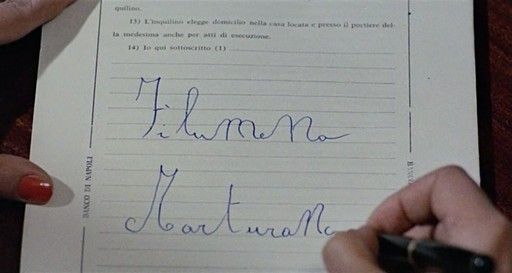 quilino.
13) L'inquilino elegge domicilio nella casa locata e presso il portiere del-
la medesima anche per atti di esecuzione.
14) Io qui sottoscritto (1)
Filumena
Marturano
BANCO DI NAPOLI